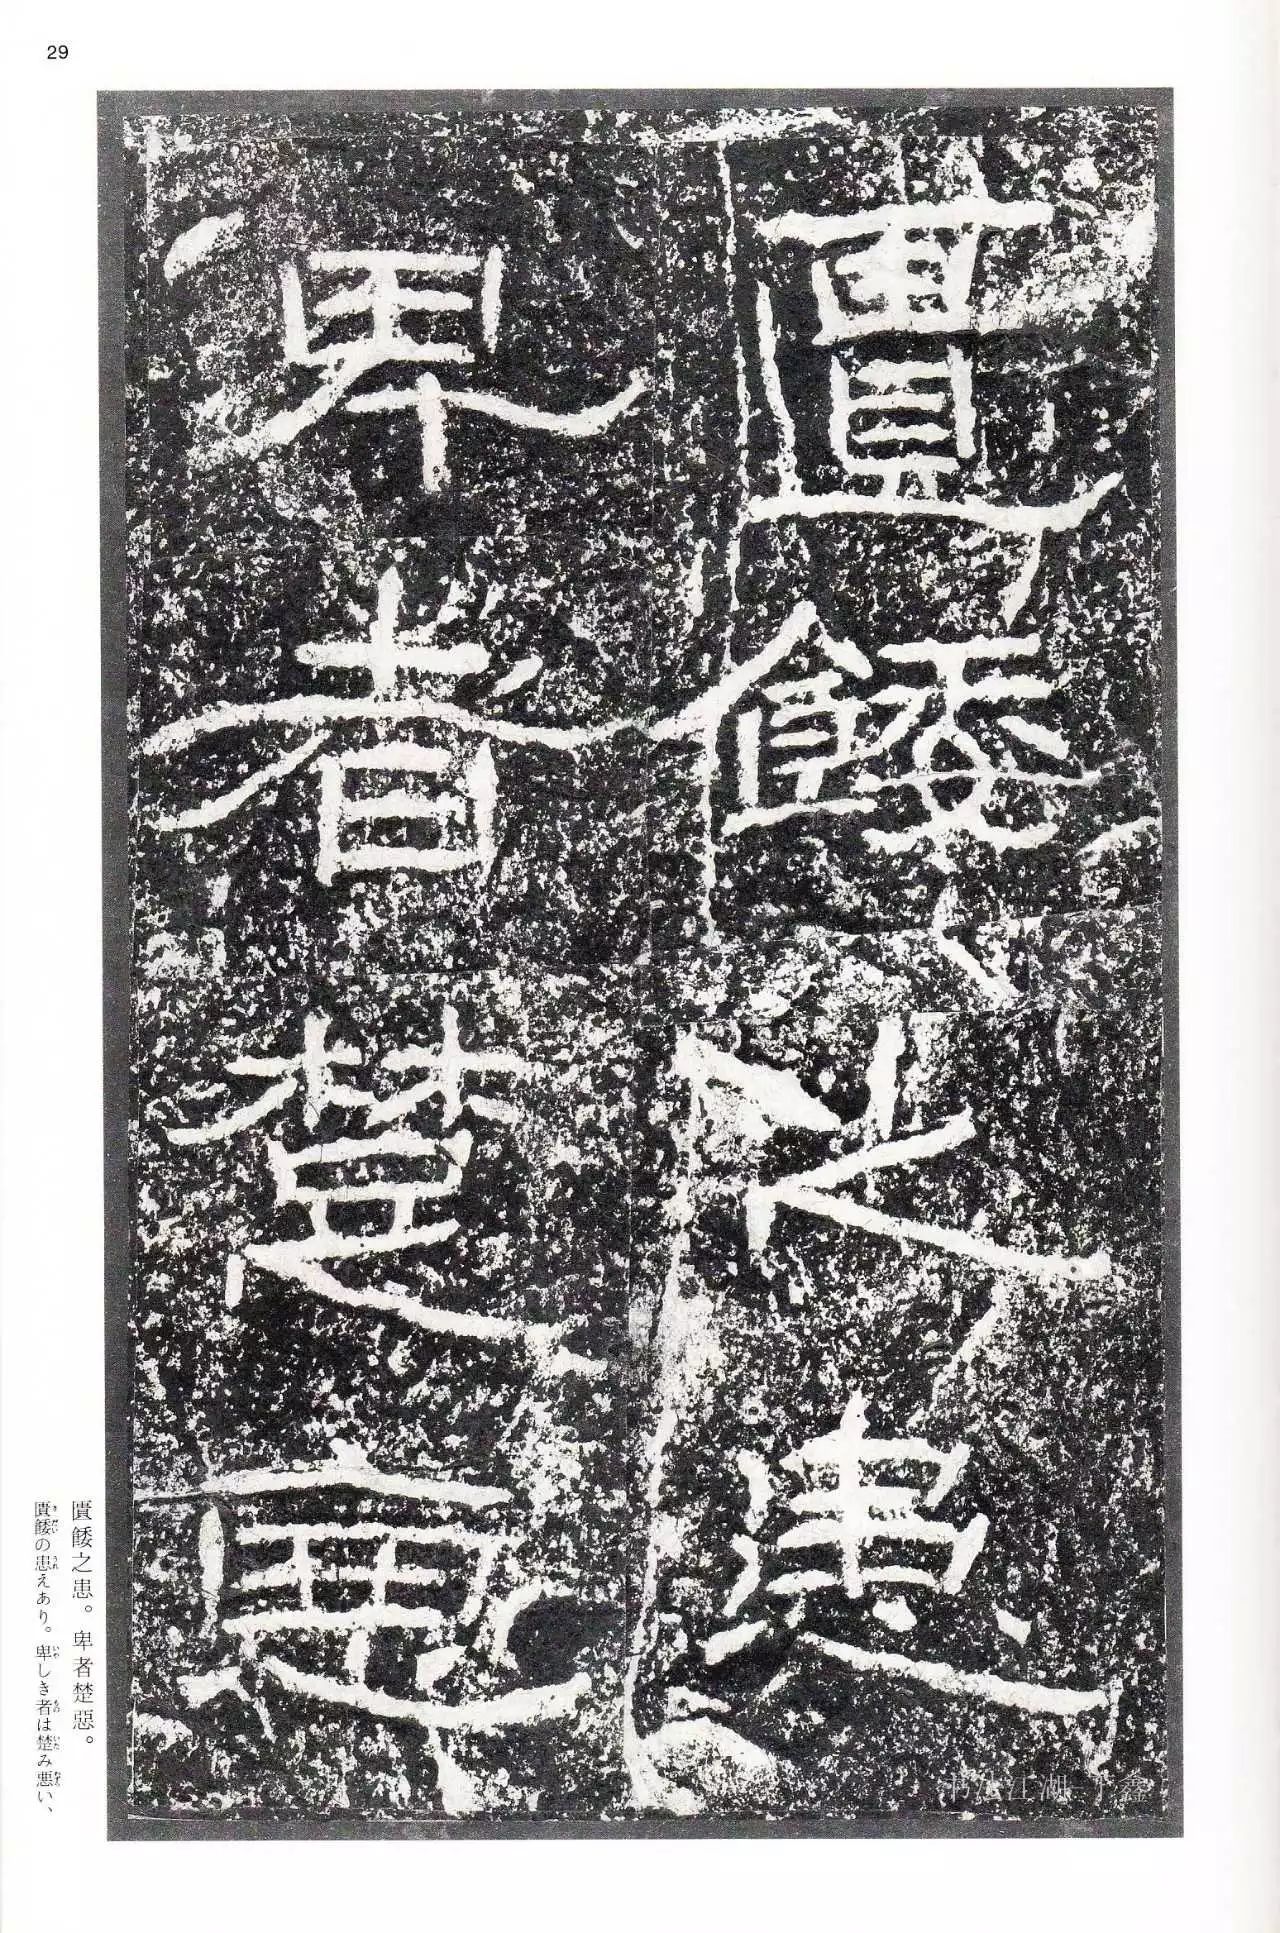 29
匱餧之患
卑者楚惡
匱餧之患。卑者楚惡。
匱餧の患えあり。卑しき者は楚み悪い、
书法江湖 丁鑫